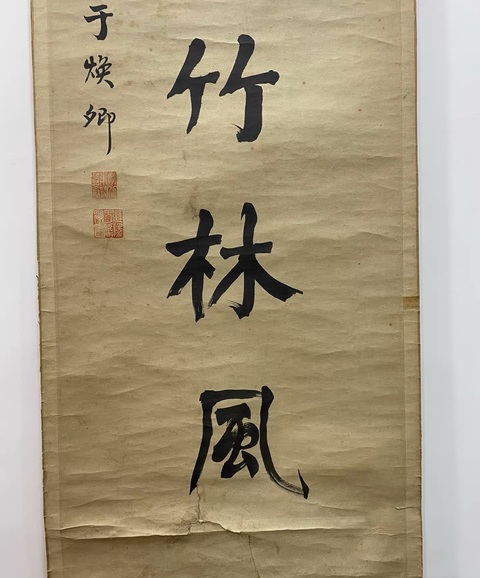 竹林風
于煥卿